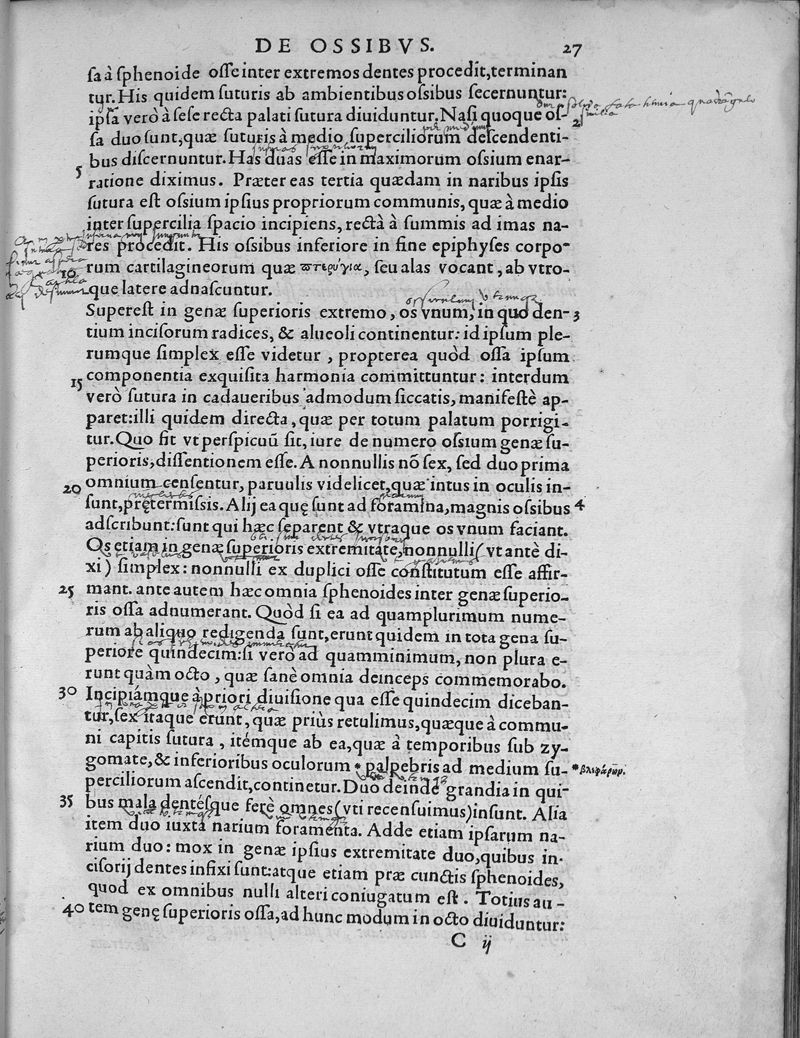 DE OSSIBVS. 27
sa à sphenoide osse inter extremos dentes procedit, terminan
tur. His quidem suturis ab ambientibus ossibus secernuntur:
ipsa verò à sese recta palati sutura diuiduntur. Nasi quoque os- 2
sa duo sunt, quæ suturis à medio superciliorum descendenti-
5 bus discernuntur. Has duas esse in maximorum ossium enar-
ratione diximus. Præter eas tertia quædam in naribus ipsis
sutura est ossium ipsius propriorum communis, quæ à medio
inter supercilia spacio incipiens, rectà à summis ad imas na-
res procedit. His ossibus inferiore in fine epiphyses corpo-
10 rum cartilagineorum quæ πτερύγια, seu alas vocant, ab vtro-
que latere adnascuntur.
Superest in genæ superioris extremo, os vnum, in quo den- 3
tium inciforum radices, & alueoli continentur: id ipsum ple-
rumque simplex esse videtur, propterea quòd ossa ipsum
15 componentia exquisita harmonia committuntur: interdum
verò sutura in cadaueribus admodum siccatis, manifestè ap-
paret: illi quidem directa, quæ per totum palatum porrigi-
tur. Quo fit vt perspicuū sit, iure de numero ossium genæ su-
perioris, dissentionem esse. A nonnullis nō sex, sed duo prima
20 omnium censentur, paruulis videlicet, quæ intus in oculis in-
sunt, prętermissis. Alij ea quę sunt ad foramina, magnis ossibus 4
adscribunt: sunt qui hæc separent & vtraque os vnum faciant.
Os etiam in genæ superioris extremitate, nonnulli (vt antè di-
xi) simplex: nonnulli ex duplici osse constitutum esse affir-
25 mant. ante autem hæc omnia sphenoides inter genæ superio-
ris ossa adnumerant. Quòd si ea ad quamplurimum nume-
rum ab aliquo redigenda sunt, erunt quidem in tota gena su-
periore quindecim: si verò ad quamminimum, non plura e-
runt quàm octo, quæ sanè omnia deinceps commemorabo.
30 Incipiámque à priori diuisione qua esse quindecim diceban-
tur, sex itaque erunt, quæ priùs retulimus, quæque à commu-
ni capitis sutura, itémque ab ea, quæ à temporibus sub zy-
gomate, & inferioribus oculorum * palpebris ad medium su- *βλεφάρων.
perciliorum ascendit, continetur. Duo deinde grandia in qui-
35 bus mala dentésque ferè omnes (vti recensuimus) insunt. Alia
item duo iuxta narium foramenta. Adde etiam ipsarum na-
rium duo: mox in genæ ipsius extremitate duo, quibus in-
cisorij dentes infixi sunt: atque etiam præ cunctis sphenoides,
quod ex omnibus nulli alteri coniugatum est. Totius au-
40 tem genę superioris ossa, ad hunc modum in octo diuiduntur:
C ij